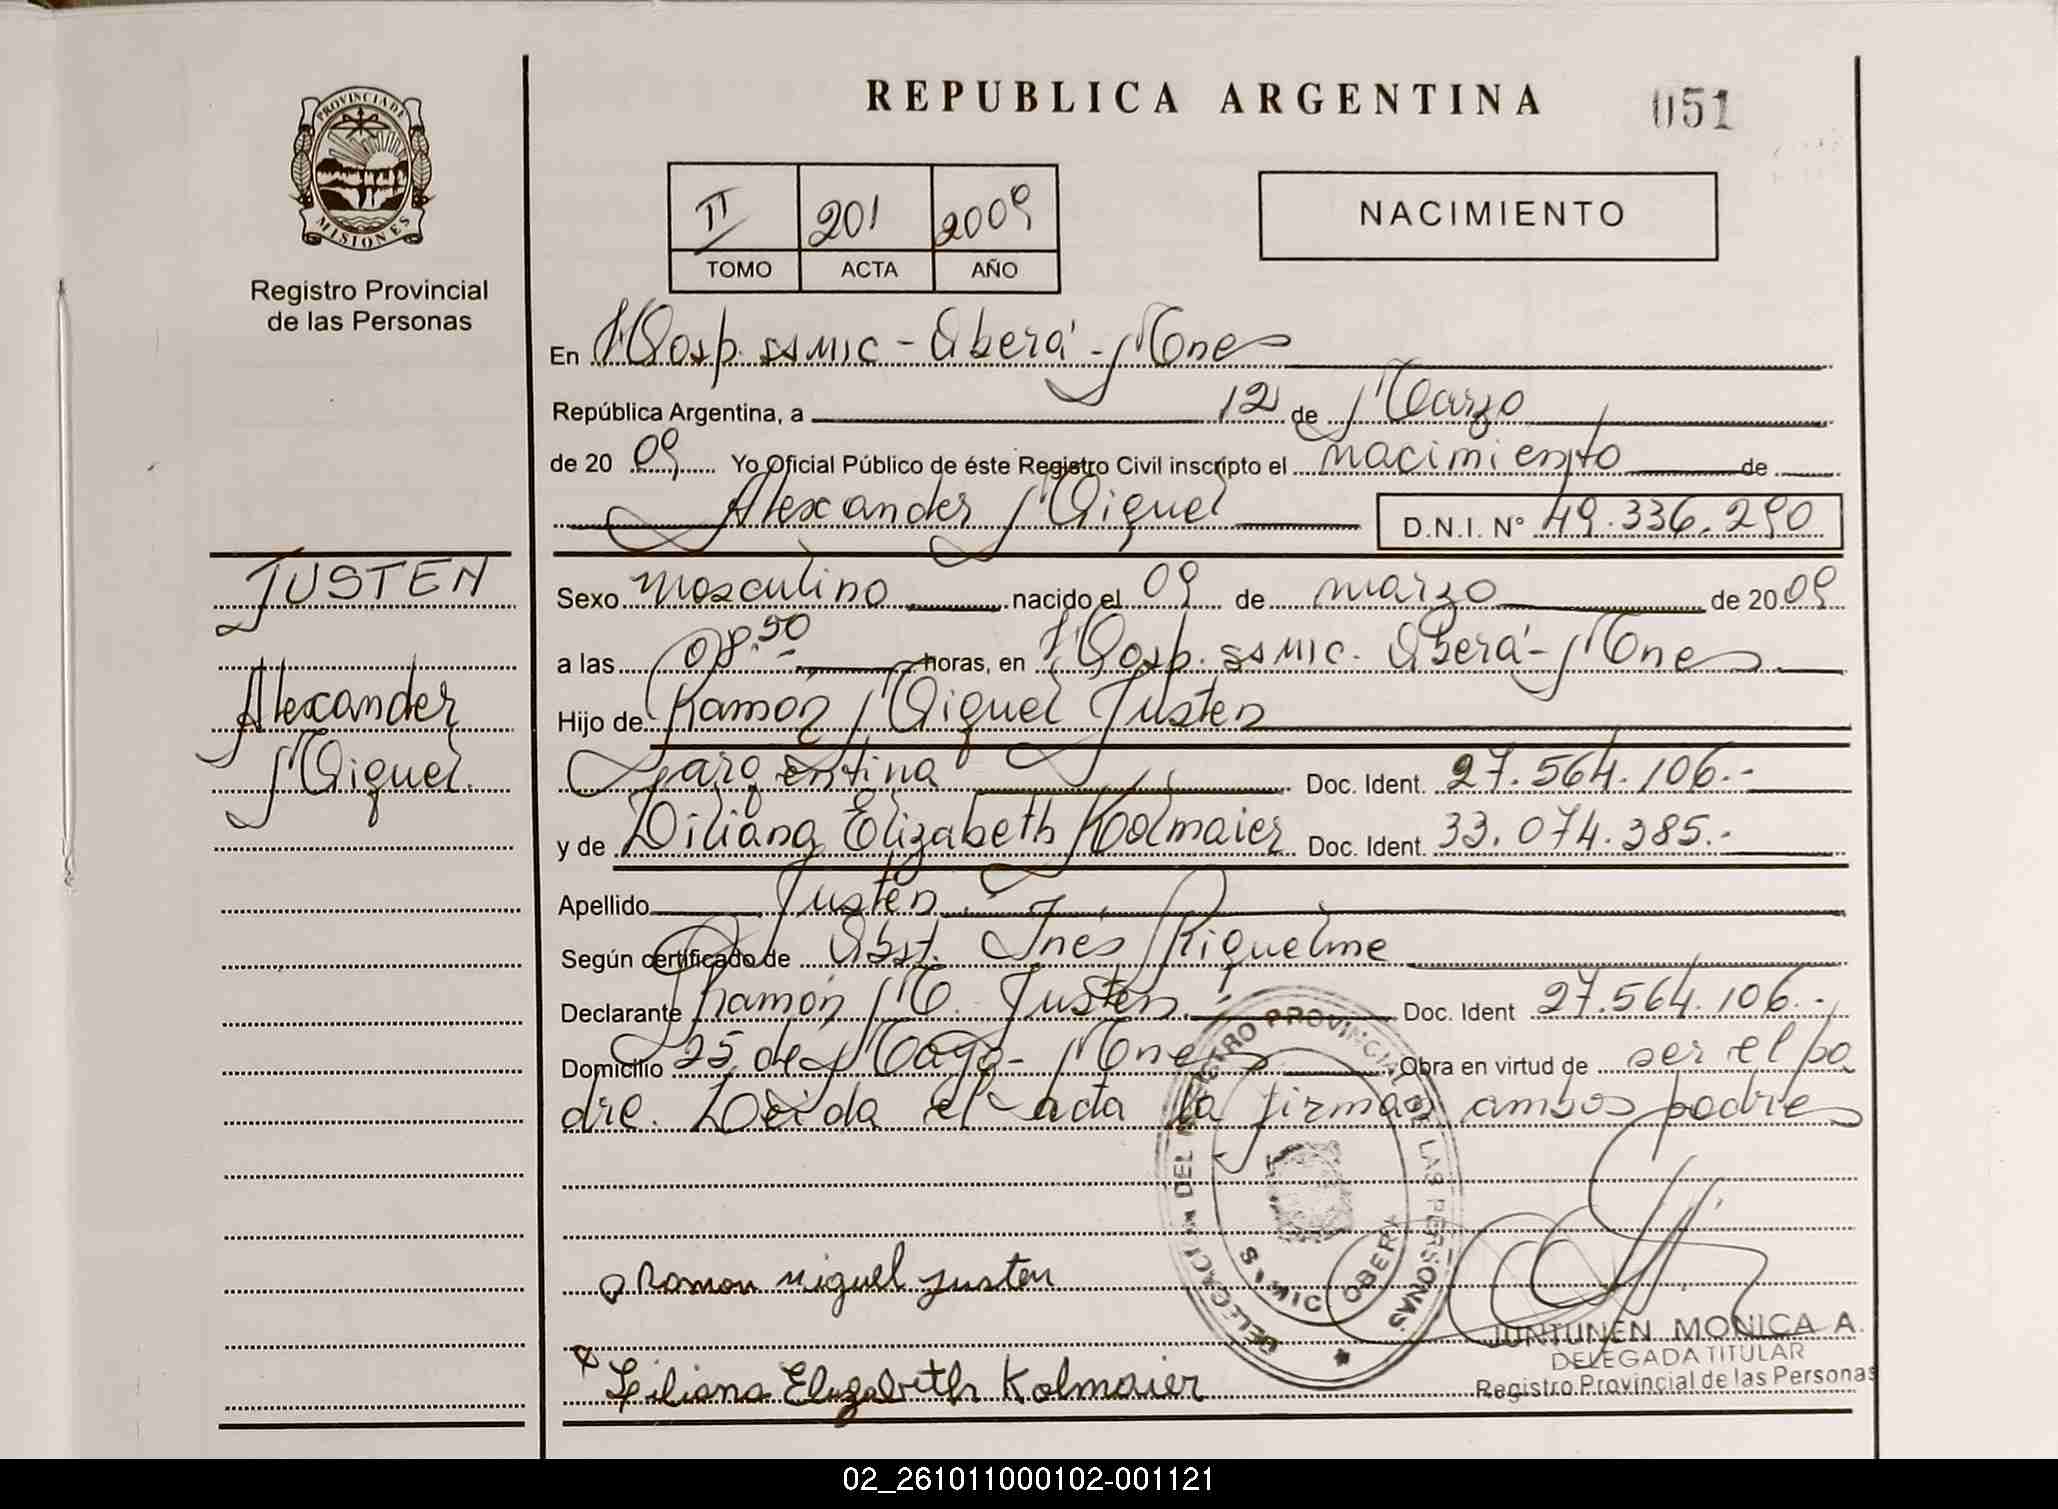 REPUBLICA ARGENTINA
051
PROVINCIA DE
MISIONES
Registro Provincial
de las Personas
II 201 2009
TOMO ACTA AÑO
NACIMIENTO
En Hosp. SSMIC - Oberá - Mnes
República Argentina, a 12 de Marzo
de 2009 Yo Oficial Público de éste Registro Civil inscripto el nacimiento de
Alexander Miguel D.N.I. N° 49.336.290
JUSTEN
Alexander
Miguel.
Sexo masculino nacido el 09 de marzo de 2009
a las 08.50 horas, en Hosp. SSMIC. Oberá - Mnes
Hijo de Ramón Miguel Justen
argentina Doc. Ident. 27.564.106.-
y de Liliana Elizabeth Kolmaier Doc. Ident. 33.074.385.-
Apellido Justen.
Según certificado de Obst. Inés Riquelme
Declarante Ramón M. Justen. Doc. Ident 27.564.106.-
Domicilio 25 de Mayo - Mnes Obra en virtud de ser el pa
dre. Leída el acta la firman ambos padres
DELEGACION DEL REGISTRO PROVINCIAL DE LAS PERSONAS
SSMIC OBERA
Ramon Miguel Justen
Liliana Elizabeth Kolmaier
JUNTUNEN MONICA A.
DELEGADA TITULAR
Registro Provincial de las Personas
02_261011000102-001121